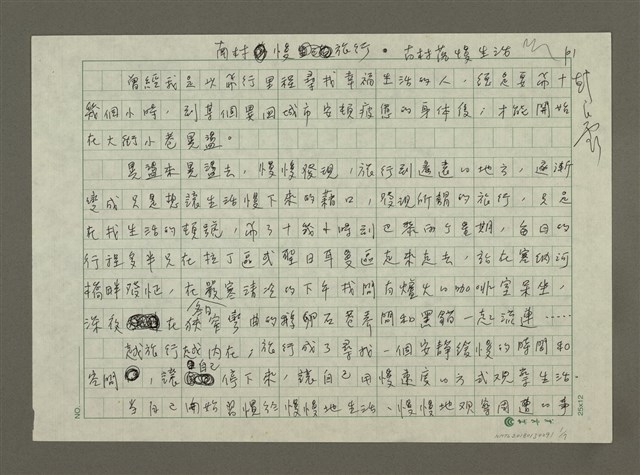 古村慢旅行·古村落慢生活 P1
曾經我是以飛行里程尋找幸福生活的人,總是要飛十
幾個小時,到某個異國城市安頓疲憊的身體後,才能開始
在大街小巷晃盪。
晃盪來晃盪去,慢慢發現,旅行到遙遠的地方,逐漸
變成只是想讓生活慢下來的藉口,發現所謂的旅行,只是
在找生活的頓號,飛了十幾小時到巴黎兩個星期,每日的
行程多半只在拉丁區或聖日耳曼區走來走去,就在塞納河
橋畔發怔,在嚴寒清冷的下午找間有爐火的咖啡室呆坐,
深夜在狹窄彎曲的鵝卵石巷弄間和黑貓一起流連……
越旅行越內在,旅行成了尋找一個安靜緩慢的時間和
空間,讓自己停下來,讓自己用慢速度的方式觀察生活。
當自己開始習慣於慢慢地生活、慢慢地觀察周遭的事
NO.
25x12